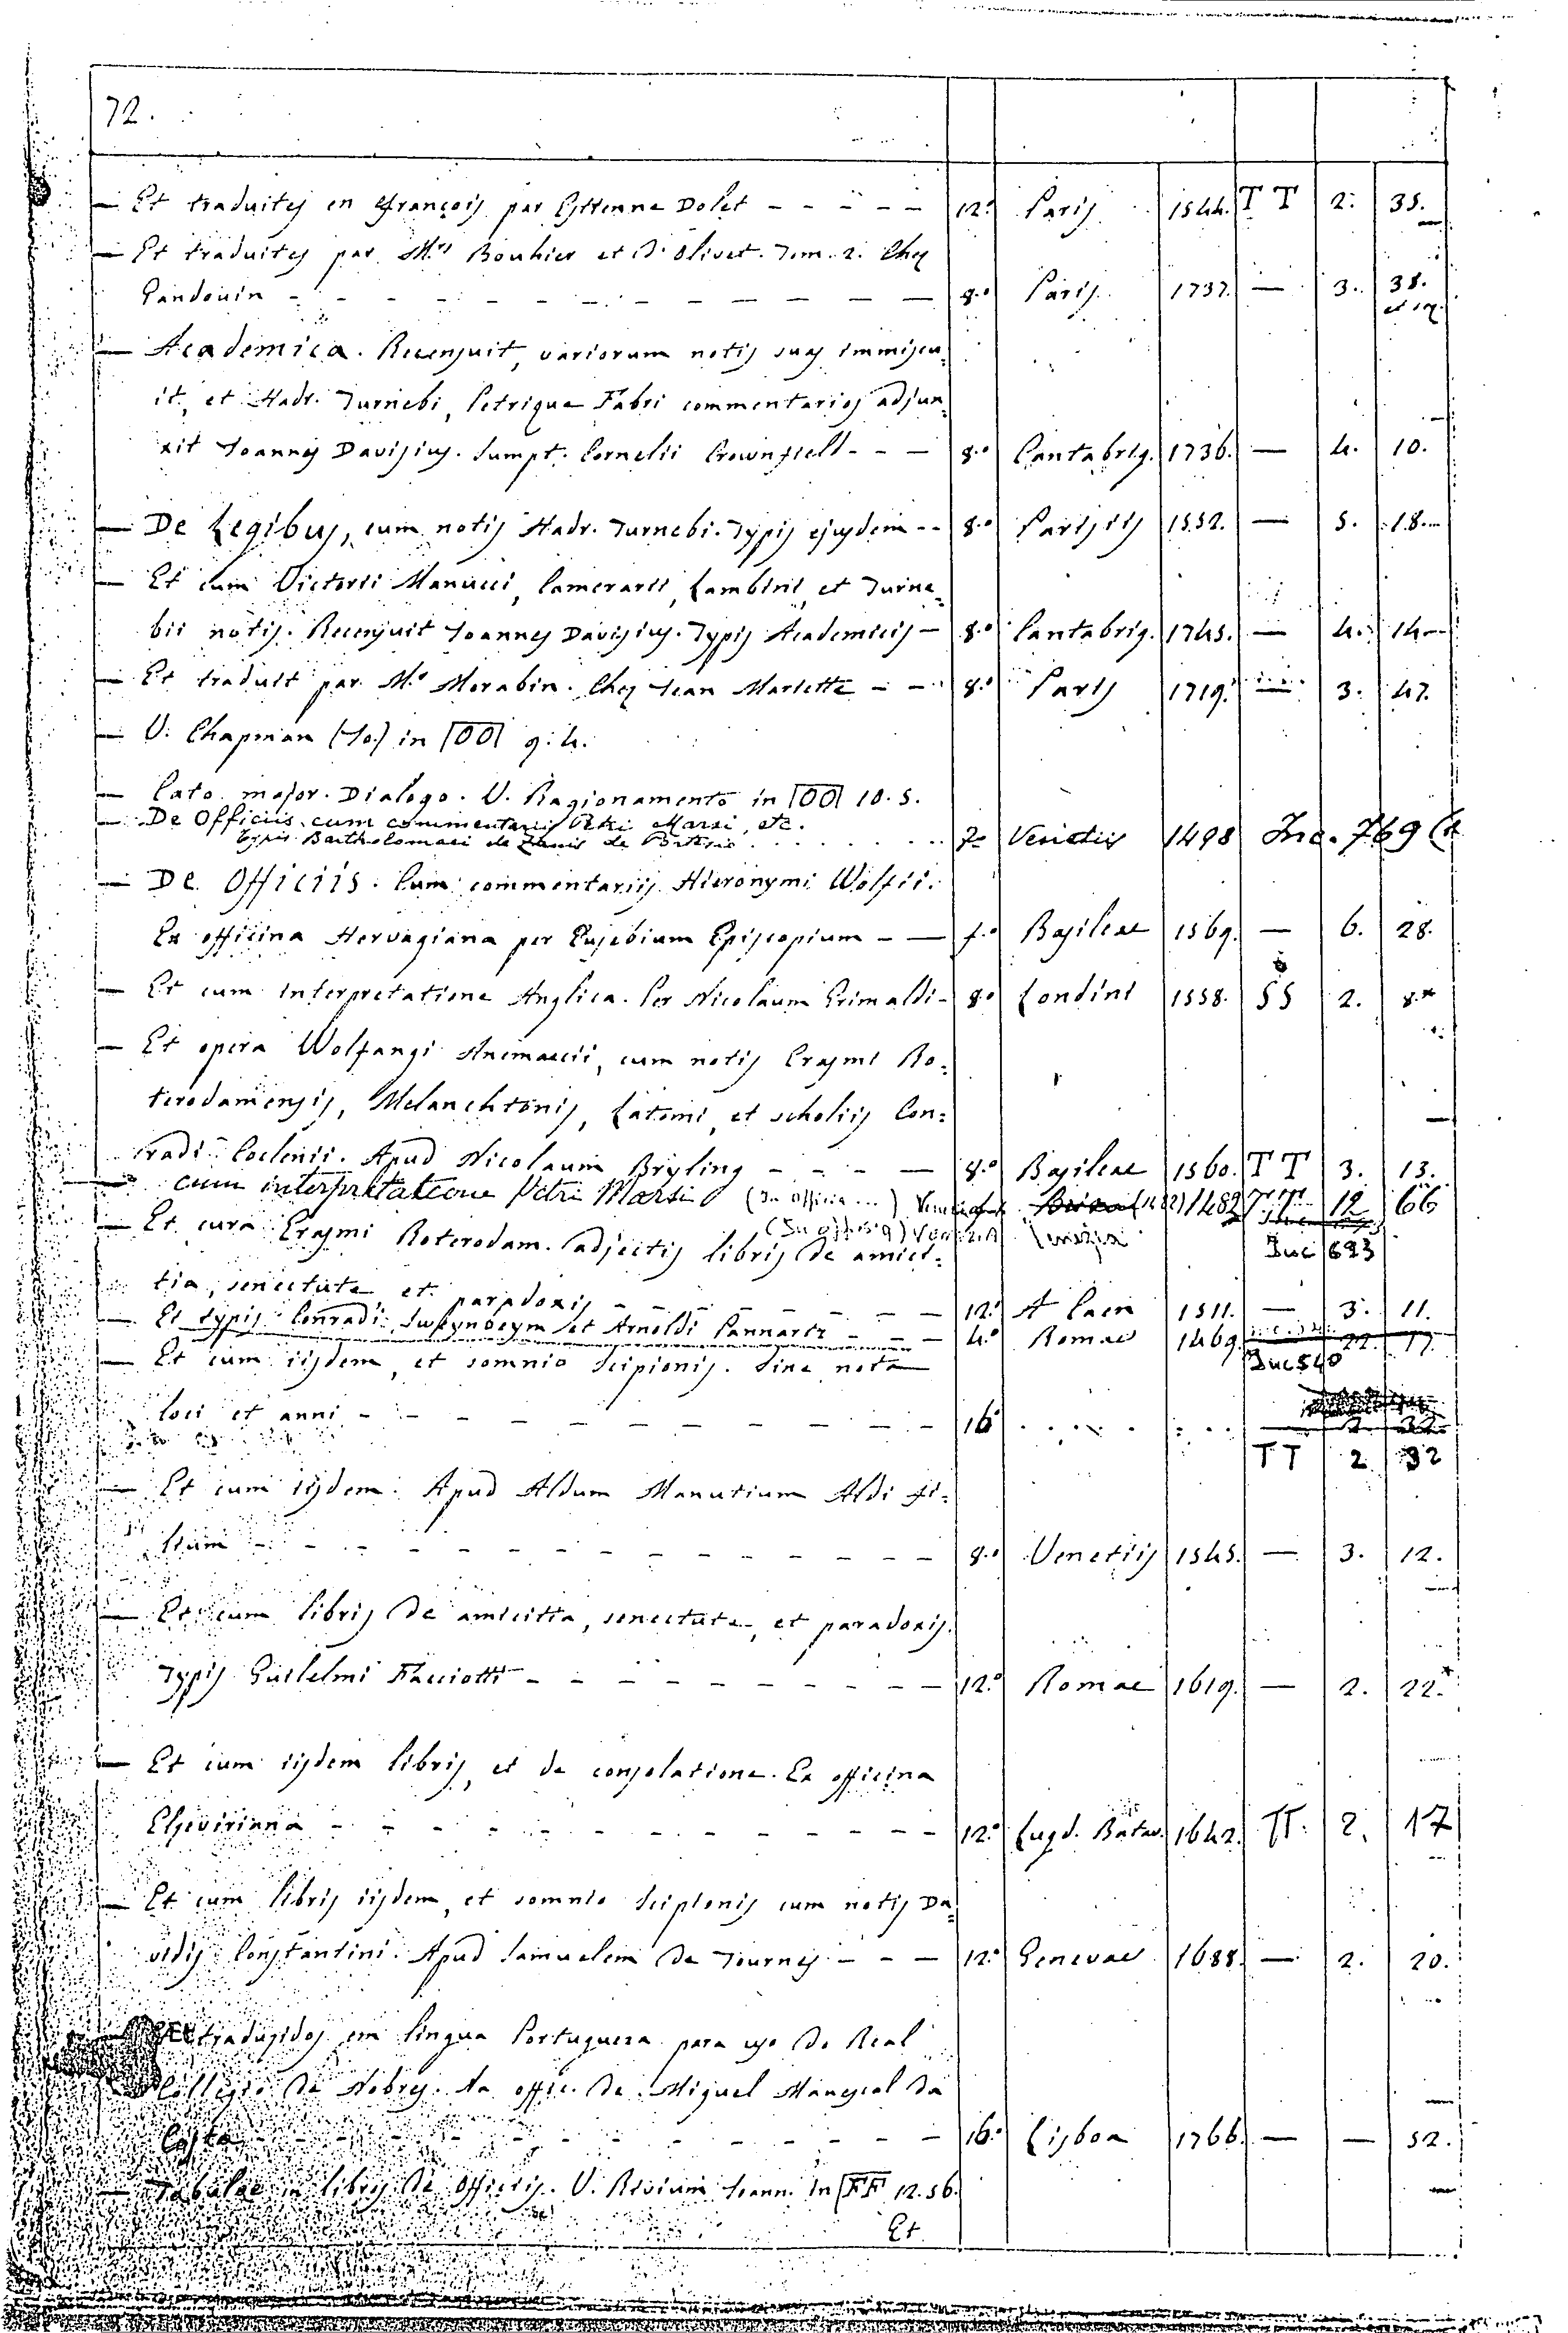 72.
— Et traduites en françois par Estienne Dolet - - - - - 12.º Paris 1544. T T 2. 35.
— Et traduites par M.rs Bouhier et D'Olivet. Tom. 2. Chez
Gandouin - - - - - - - - - - - - 8.º Paris. 1737. — 3. 38.
et seq.
— Academica. Recensuit, variorum notis suas immiscu=
it, et Hadr. Turnebi, Petrique Fabri commentarios adjun=
xit Joannes Davisius. Sumpt. Cornelii Crownfield - - - 8.º Cantabrig. 1736. — 4. 10.
— De Legibus, cum notis Hadr. Turnebi. Typis ejusdem - - 8.º Parisiis 1552. — 5. 18.
— Et cum Victorii Manucci, Camerarii, Lambini, et Turne=
bii notis. Recensuit Joannes Davisius. Typis Academicis - 8.º Cantabrig. 1745. — 4. 14.
— Et traduit par M.r Morabin. Chez Jean Mariette - - 8.º Paris 1719. — 3. 47.
— V. Chapman (Jo.) in OO 9. 4.
— Cato major. Dialogo. V. Ragionamento in OO 10. 5.
— De Officiis cum commentariis Petri Marsi, etc.
typis Bartholomaei de Zanis de . . . . . . . Venetiis 1498 Inc. 769
— De Officiis. Cum commentariis Hieronymi Wolfii.
Ex officina Hervagiana per Eusebium Episcopium - — f.º Basileae 1569. — 6. 28.
— Et cum interpretatione Anglica. Per Nicolaum Grimaldi - 8.º Londini 1558. SS 2. 8.*
— Et opera Wolfangi Anemaecii, cum notis Erasmi Ro=
terodamensis, Melanchtonis, Latomi, et scholiis Con=
radi Coclenii. Apud Nicolaum Bryling - - - — 8.º Basileae 1560. T T 3. 13.
— cum interpretatione Petri Marsi (In Officia ...) (1482) 1482 TT 12 66
— Et cura Erasmi Roterodam. adjectis libris de amici= Venezia Inc 693
tia, senectute, et paradoxis - - - - - - - 12.º A Caen 1511. — 3. 11.
— Et typis Conradi Sweynheym et Arnoldi Pannartz - - - 4.º Romae 1469. 22. 17.
Inc 540
— Et cum iisdem, et somnio Scipionis. Sine nota
loci et anni - - - - - - - - - - - 16º . . . . . . . . — 2. 32.
TT 2 32
— Et cum iisdem. Apud Aldum Manutium Aldi fi=
lium - - - - - - - - - - - - - 8.º Venetiis 1545. — 3. 12.
— Et cum libris de amicitia, senectute, et paradoxis.
Typis Guilelmi Facciotti - - - - - - - - - 12.º Romae 1619. — 2. 22.*
— Et cum iisdem libris, et de consolatione. Ex officina
Elzeviriana - - - - - - - - - - - - 12.º Lugd. Batav. 1642. TT. 2. 17
— Et cum libris iisdem, et somnio Scipionis cum notis Da=
vidis Constantini. Apud Samuelem de Tournes - - - 12.º Genevae 1688. — 2. 20.
Et traduzidos em lingua Portugueza para uso do Real
Collegio de Nobres. Na offic. de Miguel Manescal da
Costa - - - - - - - - - - - - 16.º Lisboa 1766. — — 52.
— Tabulae in libros de Officiis. V. Rivium Joann. in FF 12. 56.
Et